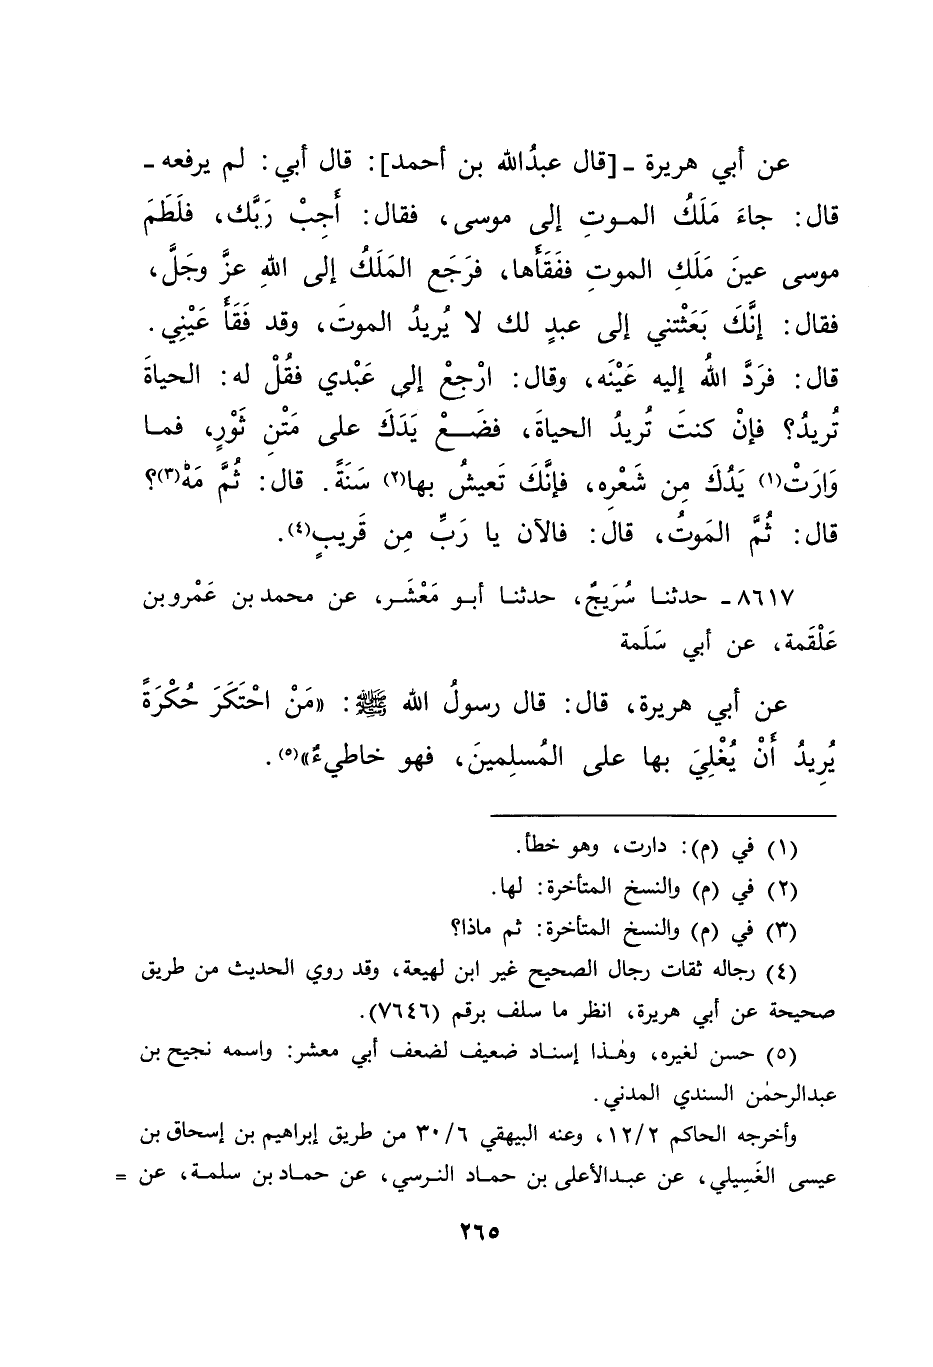 عن أبي هريرة ـ [قال عبدُالله بن أحمد]: قال أبي: لم يرفعه ـ
قال: جاءَ مَلَكُ الموتِ إلى موسى، فقال: أَجِبْ رَبَّك، فلَطَمَ
موسى عينَ مَلَكِ الموتِ ففَقَأَها، فرَجَع المَلَكُ إلى اللهِ عزَّ وجَلَّ،
فقال: إنَّكَ بَعَثْتني إلى عبدٍ لك لا يُريدُ الموتَ، وقد فَقَأَ عَيْنِي.
قال: فرَدَّ اللهُ إليه عَيْنَه، وقال: ارْجِعْ إلى عَبْدي فقُلْ له: الحياةَ
تُريدُ؟ فإنْ كنتَ تُريدُ الحياةَ، فضَعْ يَدَكَ على مَتْنِ ثَوْرٍ، فما
وَارَتْ(١) يَدُكَ مِن شَعْرِه، فإنَّكَ تَعيشُ بها(٢) سَنَةً. قال: ثُمَّ مَهْ(٣)؟
قال: ثُمَّ المَوتُ، قال: فالآن يا رَبِّ مِن قَريبٍ(٤).
٨٦١٧ ـ حدثنا سُرَيجٌ، حدثنا أبو مَعْشَر، عن محمد بن عَمْرو بن
عَلْقَمة، عن أبي سَلَمة
عن أبي هريرة، قال: قال رسولُ الله ﷺ: «مَنْ احْتَكَرَ حُكْرَةً
يُرِيدُ أَنْ يُغْلِيَ بها على المُسلِمينَ، فهو خاطيءٌ»(٥).
(١) في (م): دارت، وهو خطأ.
(٢) في (م) والنسخ المتأخرة: لها.
(٣) في (م) والنسخ المتأخرة: ثم ماذا؟
(٤) رجاله ثقات رجال الصحيح غير ابن لهيعة، وقد روي الحديث من طريق
صحيحة عن أبي هريرة، انظر ما سلف برقم (٧٦٤٦).
(٥) حسن لغيره، وهٰذا إسناد ضعيف لضعف أبي معشر: واسمه نجيح بن
عبدالرحمٰن السندي المدني.
وأخرجه الحاكم ١٢/٢، وعنه البيهقي ٣٠/٦ من طريق إبراهيم بن إسحاق بن
عيسى الغَسِيلي، عن عبدالأعلى بن حماد النرسي، عن حماد بن سلمة، عن =
٢٦٥